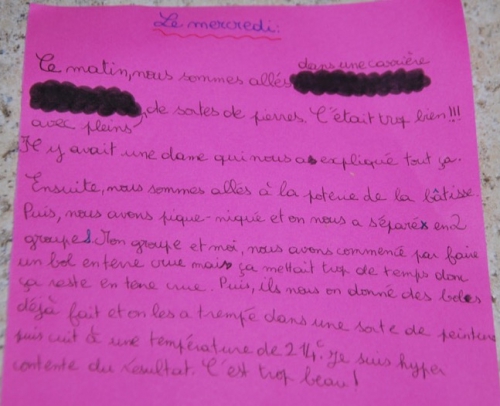 Le mercredi:
Ce matin, nous sommes allés dans une carrière
avec pleins, de sortes de pierres. C'était trop bien!!!
Il y avait une dame qui nous a expliqué tout ça.
Ensuite, nous sommes allés à la poterie de la bâtisse
Puis, nous avons pique-niqué et on nous a séparé en 2
groupes. Mon groupe et moi, nous avons commencé par faire
un bol en terre crue mais ça mettait trop de temps donc
ça reste en terre crue. Puis, ils nous on donné des boles
déjà fait et on les a trempé dans une sorte de peinture
puis cuit à une température de 214°. Je suis hyper
contente du résultat. C'est trop beau!